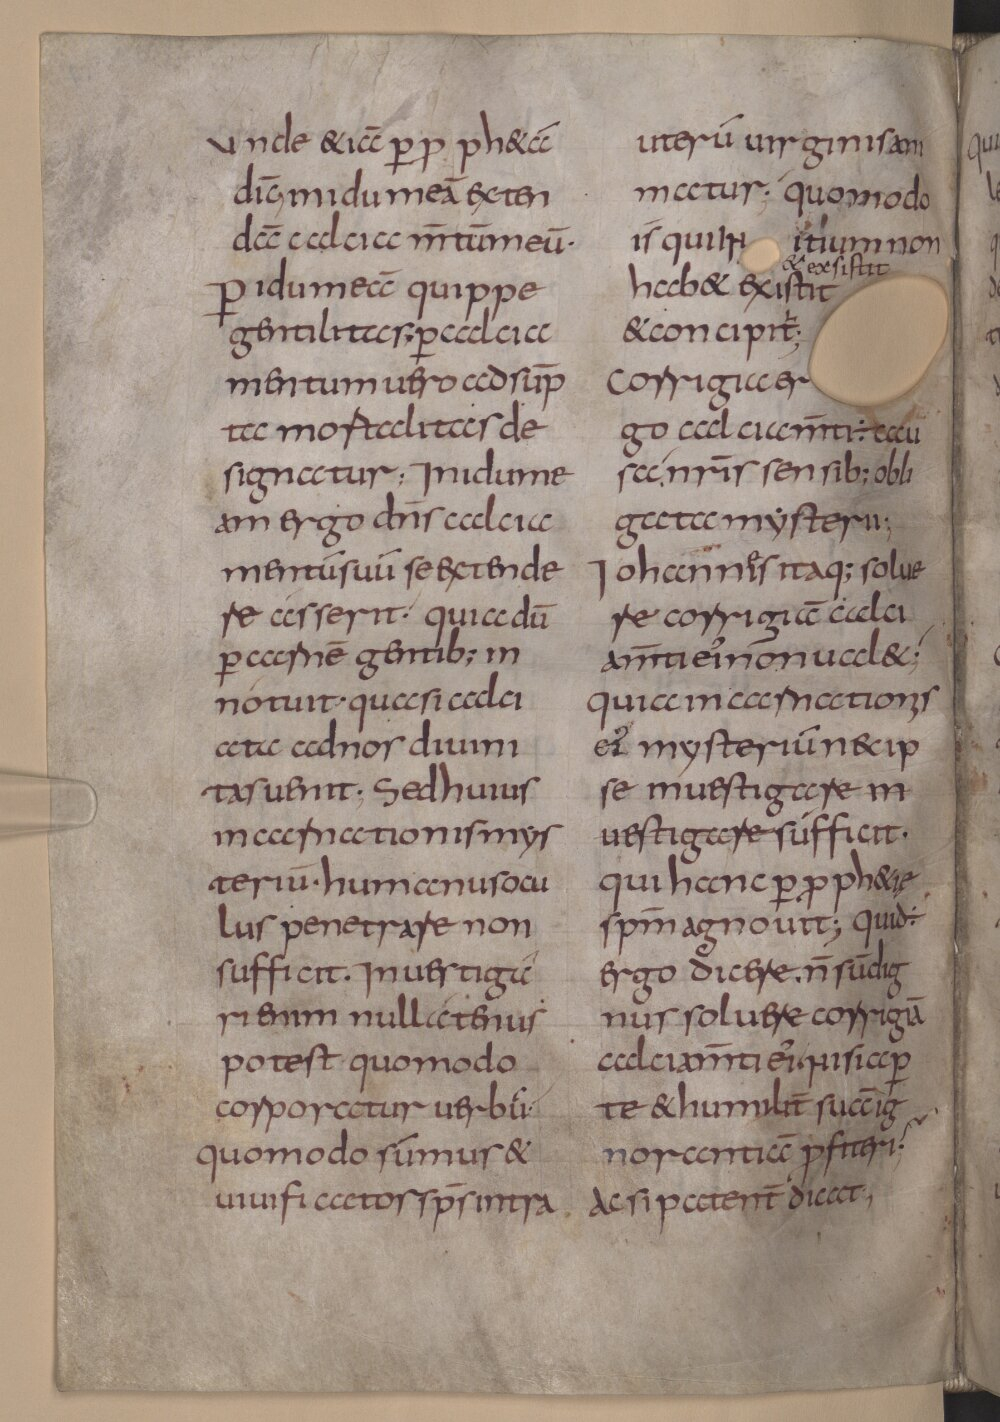 Unde &iā p̱ ꝓph&ā
dic̄ in idumeā exten
dā calcia m̄tūmeū·
P̱ idumeā quippe
gentilitas; p̱ calcia
mentum uero adsūp
ta mortalitas de
signatur; In idume
am ergo dn̄s calcia
mentūsuū se extende
re asserit· quia dū
p̱ carnē gentib; in
notuit· quasi calci
ata adnos diuini
tas uenit; Sed huius
incarnationis mys
teriū· humanus ocu
lus penetrare non
sufficit. Inuestigā
ri enim nullatenus
potest quomodo
corporatur uerbū·
quomodo sūmus &
uiuificatos sp̄s intra
uterū uirginis ani
matur; quomodo
is qui in itium non
& exsistit
hab& existit
& concipit̄;
Corrigia er
go calciam̄ti·
sā, nr̄is sensib; obli
gata mysterii;
Iohannes itaq; solue
re corrigiā calci
am̄ti ei᾽ non ual&;
quia incarnationis
ei᾽ mysteriū n& ip
se inuestigare in
uestigare sufficit·
qui hanc p̱ ꝓph&ię
sp̄m agnouit; Quid·
ergo dicere. n̄ sū dig
nus soluere corrigiā
calciam̄ti ei᾽, nisi ap̱
te & humilit̄ suā ig
norantiā ꝓfiteri;
Ac si patent̄ dicat;